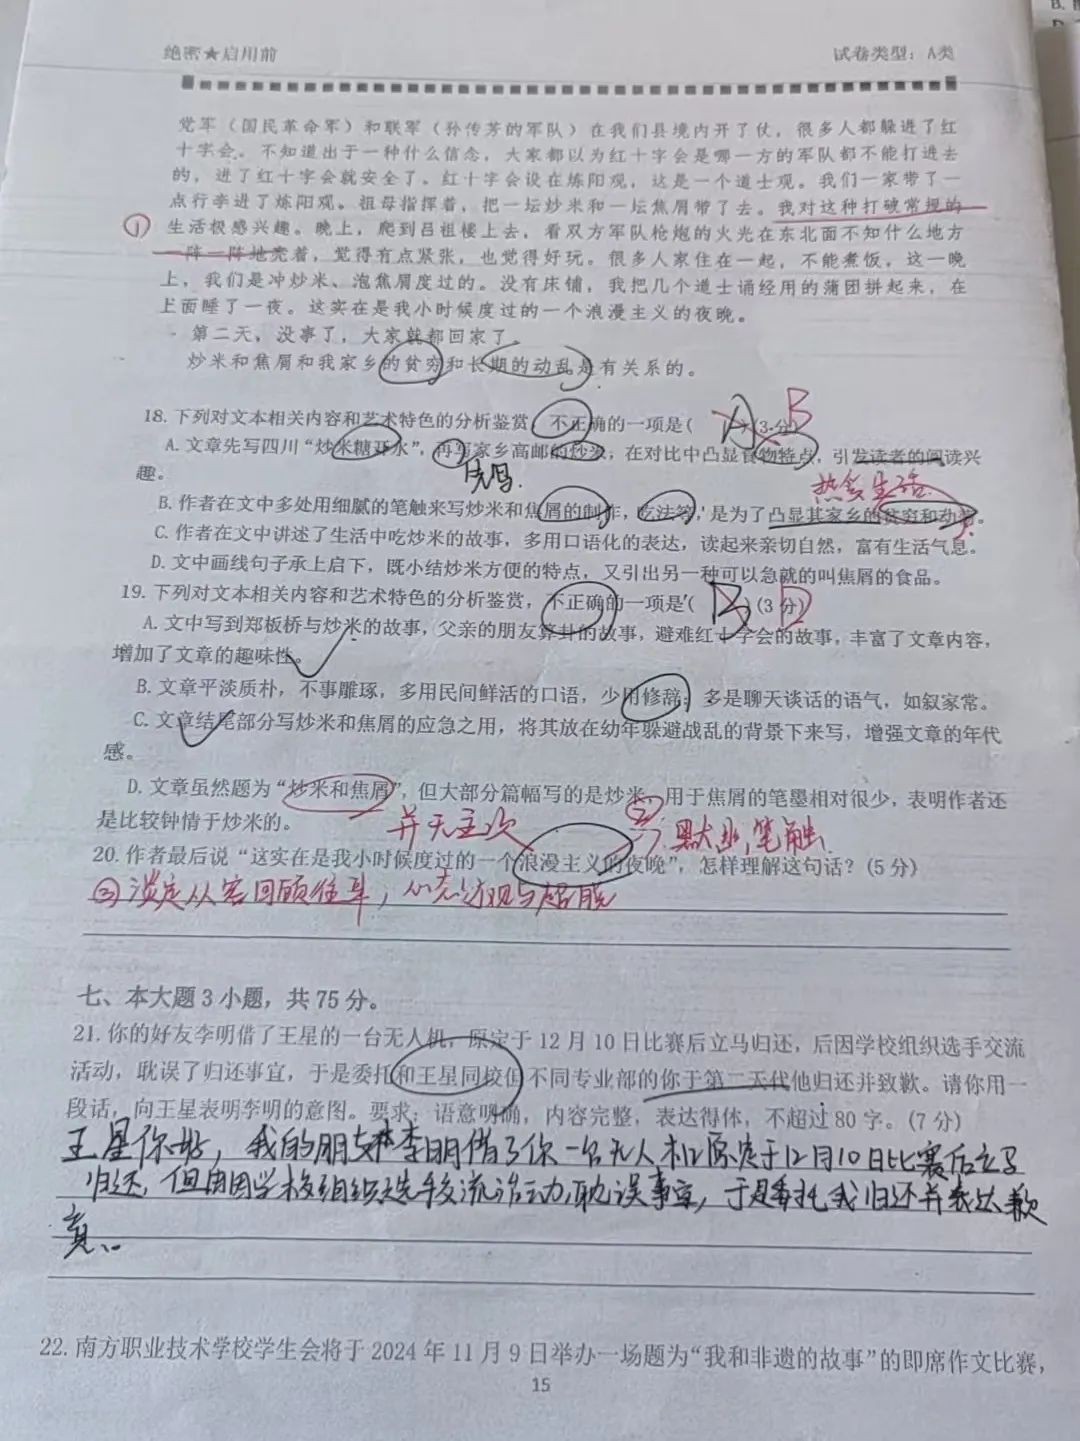 绝密★启用前
试卷类型：A类
党军（国民革命军）和联军（孙传芳的军队）在我们县境内开了仗，很多人都躲进了红
十字会。不知道出于一种什么信念，大家都以为红十字会是哪一方的军队都不能打进去
的，进了红十字会就安全了。红十字会设在炼阳观，这是一个道士观。我们一家带了一
点行李进了炼阳观。祖母指挥着，把一坛炒米和一坛焦屑带了去。我对这种打破常规的
①
生活极感兴趣。晚上，爬到吕祖楼上去，看双方军队枪炮的火光在东北面不知什么地方
一阵一阵地亮着，觉得有点紧张，也觉得好玩。很多人家住在一起，不能煮饭，这一晚
上，我们是冲炒米、泡焦屑度过的。没有床铺，我把几个道士诵经用的蒲团拼起来，在
上面睡了一夜。这实在是我小时候度过的一个浪漫主义的夜晚。
第二天，没事了，大家就都回家了。
炒米和焦屑和我家乡的贫穷和长期的动乱是有关系的。
18. 下列对文本相关内容和艺术特色的分析鉴赏，不正确的一项是( A B )(3分)
A. 文章先写四川“炒米糖开水”，再写家乡高邮的炒米，在对比中凸显食物特点，引发读者的阅读兴
趣。
先写.
热爱生活
B. 作者在文中多处用细腻的笔触来写炒米和焦屑的制作，吃法等，是为了凸显其家乡的贫穷和动乱。
C. 作者在文中讲述了生活中吃炒米的故事，多用口语化的表达，读起来亲切自然，富有生活气息。
D. 文中画线句子承上启下，既小结炒米方便的特点，又引出另一种可以急就的叫焦屑的食品。
19. 下列对文本相关内容和艺术特色的分析鉴赏，不正确的一项是( B D )(3分)
A. 文中写到郑板桥与炒米的故事，父亲的朋友算卦的故事，避难红十字会的故事，丰富了文章内容，
增加了文章的趣味性。
B. 文章平淡质朴，不事雕琢，多用民间鲜活的口语，少用修辞；多是聊天谈话的语气，如叙家常。
C. 文章结尾部分写炒米和焦屑的应急之用，将其放在幼年躲避战乱的背景下来写，增强文章的年代
感。
D. 文章虽然题为“炒米和焦屑”，但大部分篇幅写的是炒米，用于焦屑的笔墨相对很少，表明作者还
是比较钟情于炒米的。
并无主次
②
笔触
20. 作者最后说“这实在是我小时候度过的一个浪漫主义的夜晚”，怎样理解这句话？(5分)
③淡定从容回顾往事，
超脱
七、本大题3小题，共75分。
21. 你的好友李明借了王星的一台无人机，原定于12月10日比赛后立马归还，后因学校组织选手交流
活动，耽误了归还事宜，于是委托和王星同校但不同专业部的你于第二天代他归还并致歉。请你用一
段话，向王星表明李明的意图。要求：语意明确，内容完整，表达得体，不超过80字。(7分)
王星你好，我的朋友李明借了你一台无人机原定于12月10日比赛后立马
归还，但由因学校组织选手交流活动，耽误事宜，于是委托我归还并表达歉
意。
22. 南方职业技术学校学生会将于2024年11月9日举办一场题为“我和非遗的故事”的即席作文比赛，
15